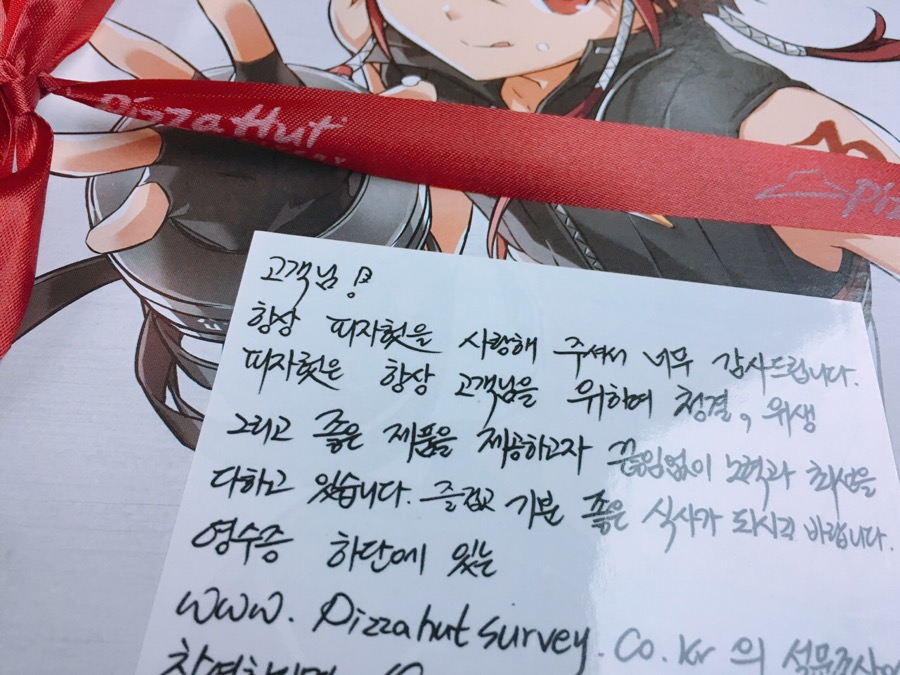 Pizza Hut
piz
고객님!
항상 피자헛을 사랑해 주셔서 너무 감사드립니다.
피자헛은 항상 고객님을 위하여 청결, 위생
그리고 좋은 제품을 제공하고자 끊임없이 노력과 최선을
다하고 있습니다. 즐겁고 기분 좋은 식사가 되시길 바랍니다.
영수증 하단에 있는
www.Pizzahutsurvey.co.kr 의